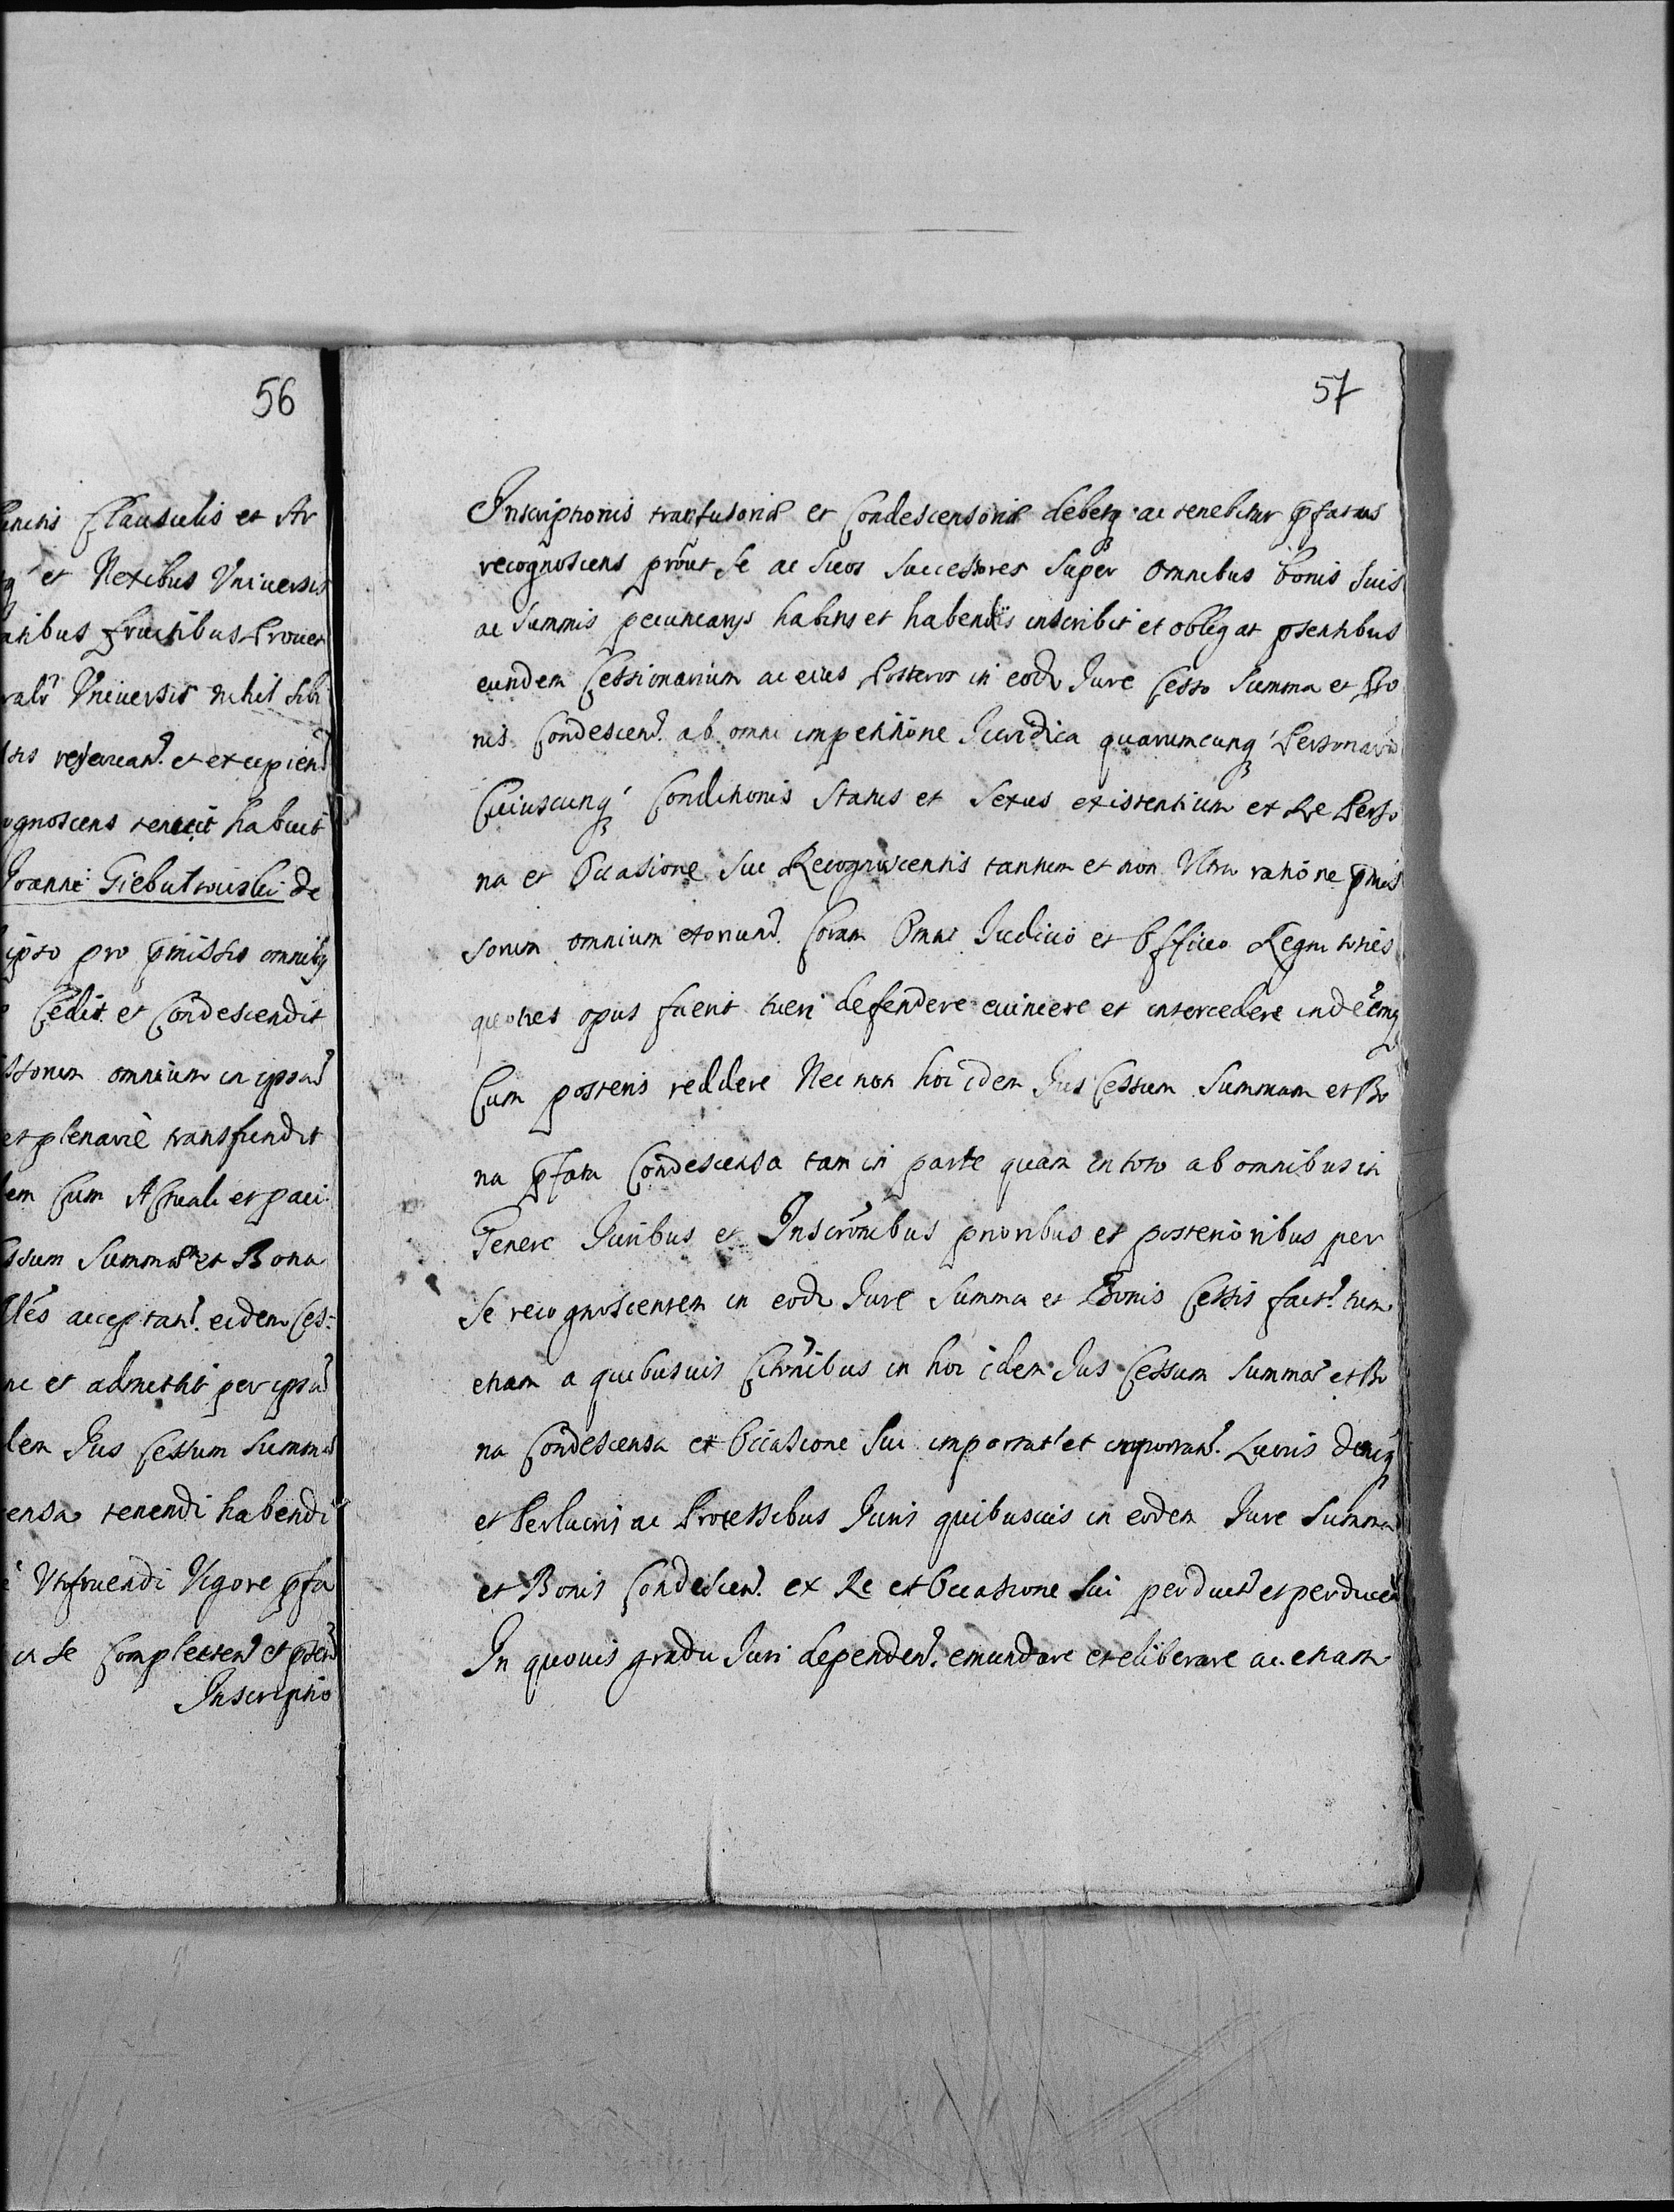 56
unctis Clausulis et Ar
et Nexibus Vniversis
fructibus Prouen
Vniuersis nihil sibi
reseruan. et excipien
ognoscens tenuit habuit
Joanni Giebultouski de
ipso pro pmissis omnibq
Cedit et Condescendit
ssorum omnium in ipsum
et plenariè transfundit
em Cum Actuali et paci
ssum Summam et Bona
acceptan. eidem Ces:
et admittit per ipsum
dem Jus Cessum Summam
ensa tenendi habendi
Vtifruendi Vigore pfa
in se Complecten et psen
Inscriptio
57
Inscriptionis transfusoriae et Condescensoriae debetq ac tenebitur pfatus
recognoscens prout se ac suos successores super omnibus bonis suis
ac summis pecuniarys habitis et habendis inscribit et obligat psentibus
eundem Cessionarium ac eius Posteros in eod Jure Cesso Summa et Bo
nis Condescen. ab omni impetitione Juridica quarumcunq Personarum
Cuiuscunq Conditionis Status et Sexus existentium ex Re Perso
na et Occasione sui Recognoscentis tantum et non Vltra ratione pmis
sorum omnium exoriund. Coram Omni Judicio et Officio Regni toties
quoties opus fuerit tueri defendere euincere et intercedere indemnq
Cum posteris reddere Nec non hoc idem Jus Cessum Summam et Bo
na pfata Condescensa tam in parte quam in toto ab omnibus in
Genere Juribus et Inscronibus prioribus et posterioribus per
se recognoscentem in eod Jure Summa et Bonis Cessis fact. tum
etiam a quibusuis Citonibus in hoc idem Jus Cessum Summam et Bo
na Condescensa et Occasione sui importat et importan. Lucris deniq
et Perlucris ac Processibus Juris quibusuis in eodem Jure Summa
et Bonis Condescen. ex Re et Occasione sui perduct et perducen
In quouis gradu Juri dependen. emundare et eliberare ac etiam